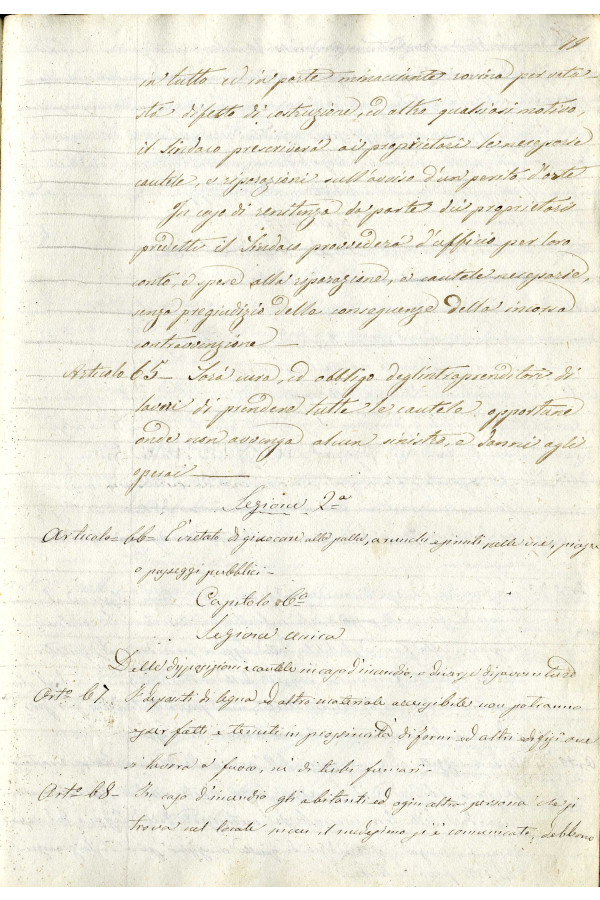 19
in tutto ed in parte minacciante rovina per vetu-
stà difetto di costruzione, ed altro qualsiasi motivo,
il Sindaco prescriverà ai proprietarî le necessarie
cautele, e riparazioni sull'avviso d'un perito d'arte
In caso di renitenza da parte dei proprietarî
predetti il Sindaco provvederà d'ufficio per loro
conto, e spese alla riparazione, e cautele necessarie,
senza pregiudizio delle conseguenze della incorsa
contravvenzione —
Articolo 65 – Sarà cura, ed obbligo degl'intraprenditori di
lavori di prendere tutte le cautele opportune
onde non avvenga alcun sinistro, e danni agli
operai —
Sezione 2a
Articolo = 66 = È vietato di giuocare alla palla, a ruschi e pinuti nelle vie, piazze
o passeggi pubblici –
Capitolo 6o
Sezione unica
Delle disposizioni e cautele in caso d'incendio, e
Arto 67 I depositi di legna ed altro materiale accensibile non potranno
esser fatti e tenuti in prossimità di forni ed altri edifizi ove
si lavora a fuoco, nè di tubi fumari –
Arto 68 – In caso d'incendio gli abitanti ed ogni altra persona che si
trova nel locale il medesimo si è comunicato, debbono